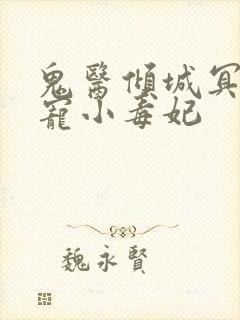 鬼醫傾城冥
寵小毒妃
魏永賢